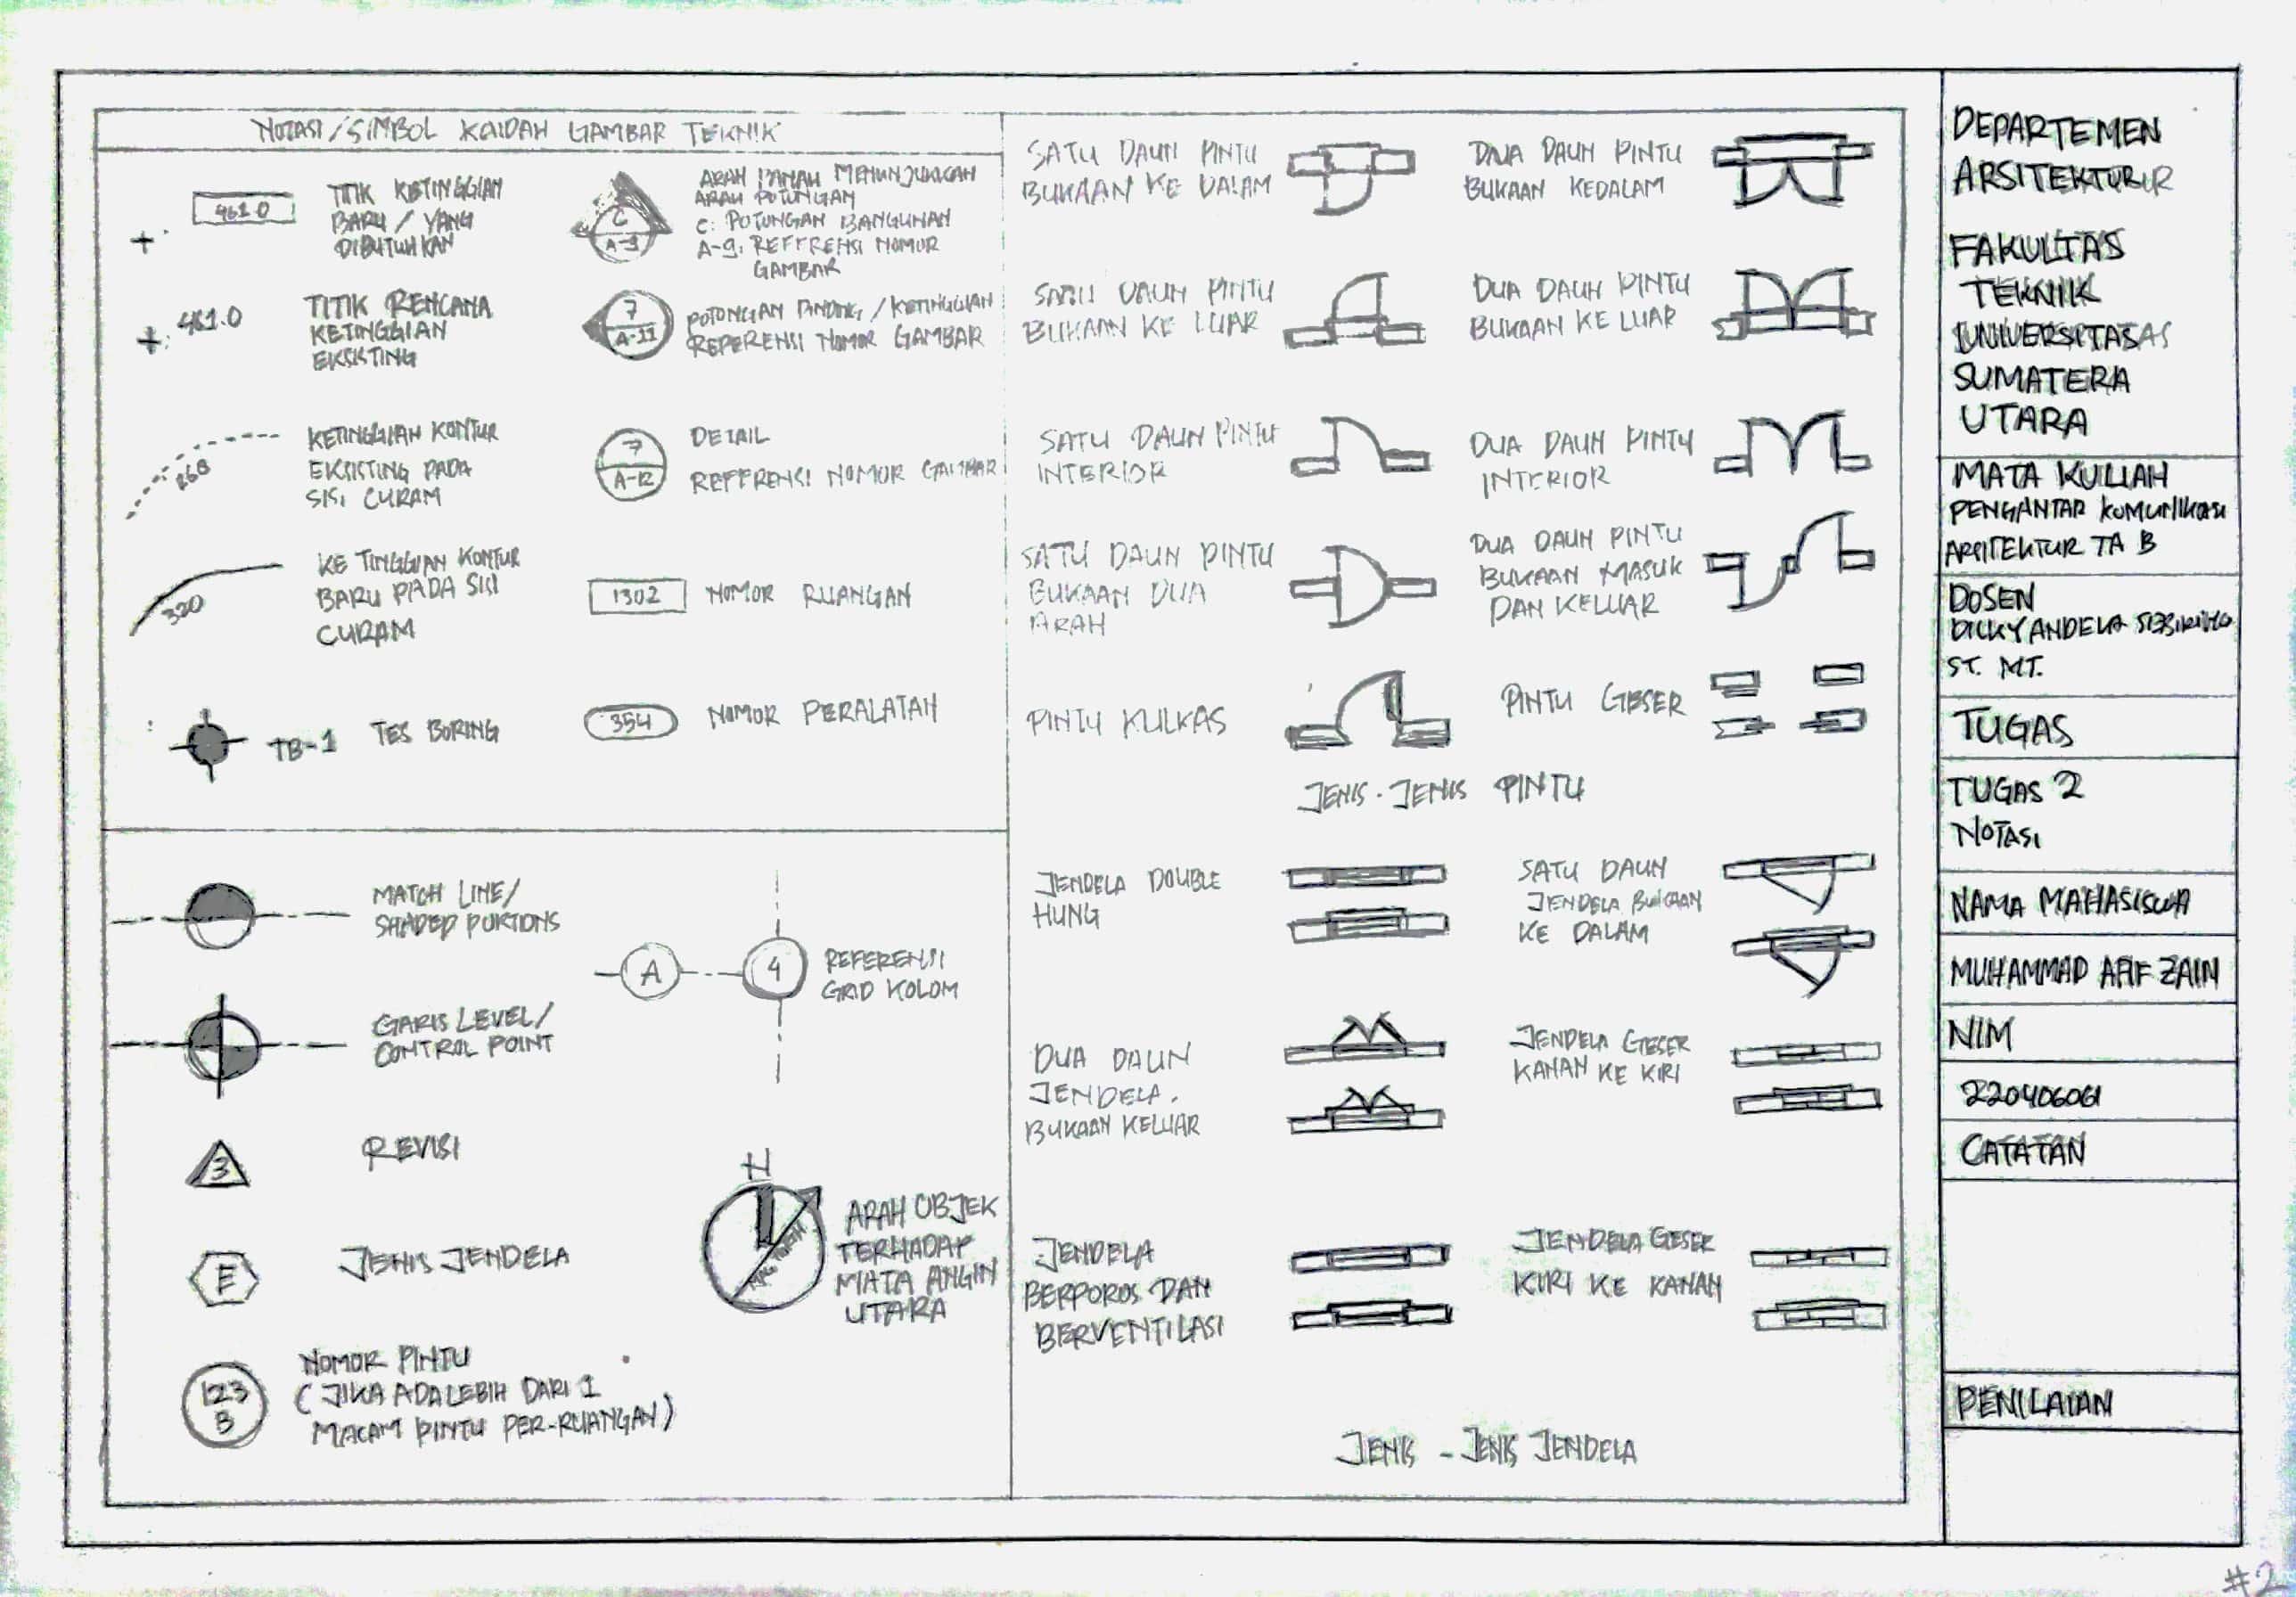 NOTASI/SIMBOL KAIDAH GAMBAR TEKNIK
461.0
TITIK KETINGGIAN
BARU / YANG
DIBUTUHKAN
C
A-9
ARAH PANAH MENUNJUKKAN
ARAH POTONGAN
C: POTONGAN BANGUNAN
A-9: REFERENSI NOMOR
GAMBAR
461.0
TITIK RENCANA
KETINGGIAN
EKSISTING
7
A-11
POTONGAN DINDING / KETINGGIAN
REPERENSI NOMOR GAMBAR
268
KETINGGIAN KONTUR
EKSISTING PADA
SISI CURAM
7
A-12
DETAIL
REFERENSI NOMOR GAMBAR
320
KETINGGIAN KONTUR
BARU PADA SISI
CURAM
1302
NOMOR RUANGAN
TB-1
TES BORING
354
NOMOR PERALATAN
MATCH LINE/
SHADED PORTIONS
GARIS LEVEL/
CONTROL POINT
A
4
REFERENSI
GRID KOLOM
3
REVISI
E
JENIS JENDELA
N
ARAH OBJEK
TERHADAP
MATA ANGIN
UTARA
123
B
NOMOR PINTU
(JIKA ADA LEBIH DARI 1
MACAM PINTU PER-RUANGAN)
SATU DAUN PINTU
BUKAAN KE DALAM
DUA DAUN PINTU
BUKAAN KEDALAM
SATU DAUN PINTU
BUKAAN KE LUAR
DUA DAUN PINTU
BUKAAN KE LUAR
SATU DAUN PINTU
INTERIOR
DUA DAUN PINTU
INTERIOR
SATU DAUN PINTU
BUKAAN DUA
ARAH
DUA DAUN PINTU
BUKAAN MASUK
DAN KELUAR
PINTU KULKAS
PINTU GESER
JENIS-JENIS PINTU
JENDELA DOUBLE
HUNG
SATU DAUN
JENDELA BUKAAN
KE DALAM
DUA DAUN
JENDELA.
BUKAAN KELUAR
JENDELA GESER
KANAN KE KIRI
JENDELA
BERPOROS DAN
BERVENTILASI
JENDELA GESER
KIRI KE KANAN
JENIS - JENIS JENDELA
DEPARTEMEN
ARSITEKTUR
FAKULTAS
TEKNIK
UNIVERSITAS
SUMATERA
UTARA
MATA KULIAH
PENGANTAR KOMUNIKASI
ARSITEKTUR TA B
DOSEN
DICKY ANDELA
ST. MT.
TUGAS
TUGAS 2
NOTASI
NAMA MAHASISWA
MUHAMMAD AFIF ZAIN
NIM
220406061
CATATAN
PENILAIAN
#2